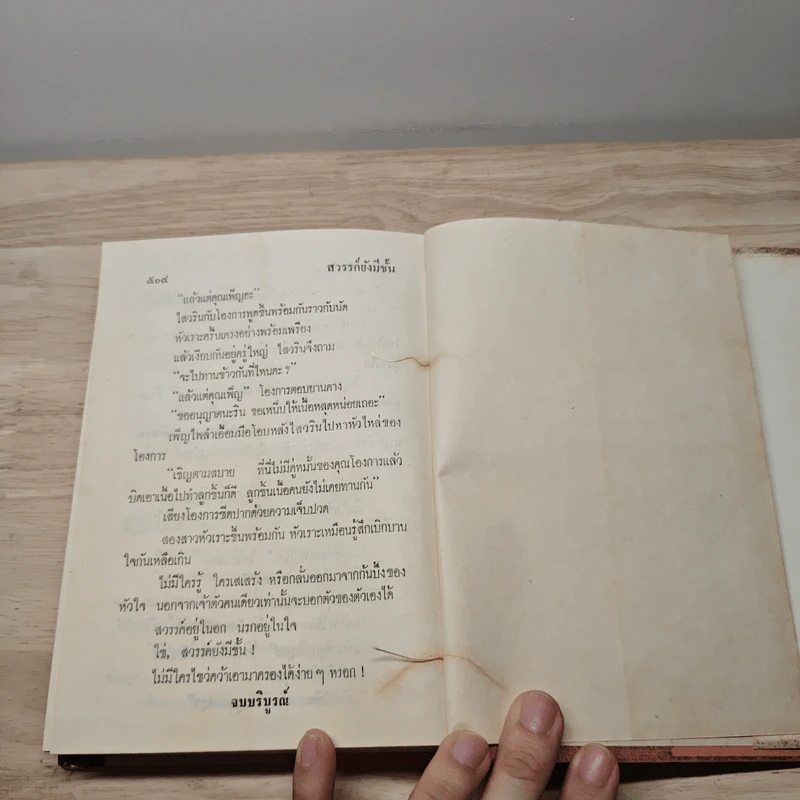 ๕๐๔
สวรรค์ยังมีชั้น
"แล้วแต่คุณเพ็ญฮะ"
ไสวรินกับโองการพูดขึ้นพร้อมกันราวกับนัด
หัวเราะครื้นเครงอย่างพร้อมเพรียง
แล้วเงียบกันอยู่ครู่ใหญ่ ไสวรินจึงถาม
"จะไปทานข้าวกันที่ไหนคะ ?"
"แล้วแต่คุณเพ็ญ" โองการตอบยานคาง
"ขออนุญาตนะริน ขอเหน็บให้เนื้อหลุดหน่อยเถอะ"
เพ็ญไพลำเอื้อมมือโอบหลังไสวรินไปหาหัวไหล่ของ
โองการ
"เชิญตามสบาย ที่นี่ไม่มีคู่หมั้นของคุณโองการแล้ว
บิดเอาเนื้อไปทำลูกชิ้นก็ดี ลูกชิ้นเนื้อคนยังไม่เคยทานกัน"
เสียงโองการซี้ดปากด้วยความเจ็บปวด
สองสาวหัวเราะขึ้นพร้อมกัน หัวเราะเหมือนรู้สึกเบิกบาน
ใจกันเหลือเกิน
ไม่มีใครรู้ ใครเสแสร้ง หรือกลั่นออกมาจากก้นบึ้งของ
หัวใจ นอกจากเจ้าตัวคนเดียวเท่านั้นจะบอกตัวของตัวเองได้
สวรรค์อยู่ในอก นรกอยู่ในใจ
ใช่, สวรรค์ยังมีชั้น !
ไม่มีใครไขว่คว้าเอามาครองได้ง่าย ๆ หรอก !
จบบริบูรณ์